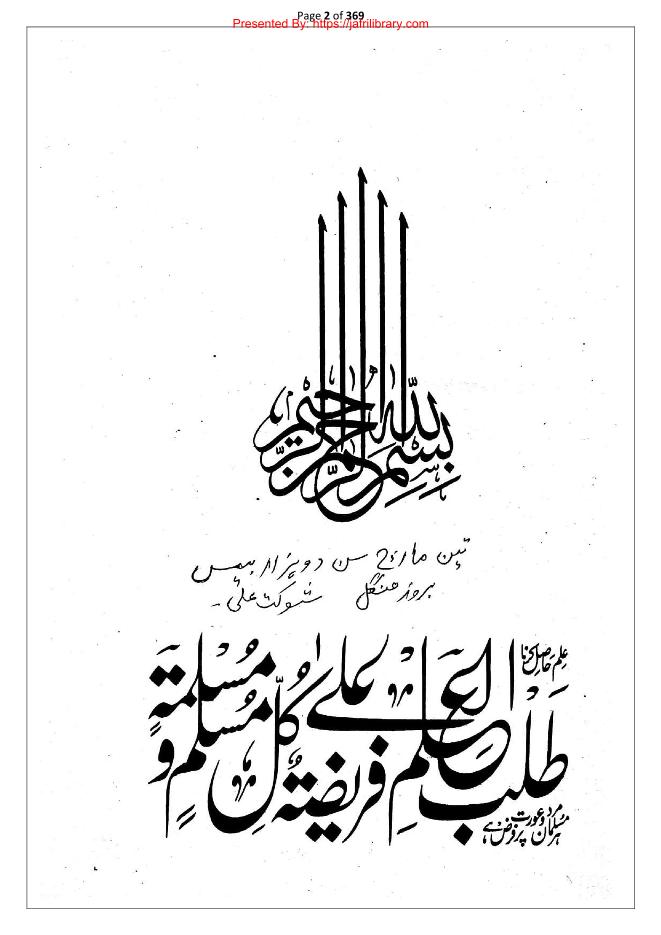 Page 2 of 369
Presented By: https://jafrilibrary.com
بِسْمِ اللہِ الرَّحْمٰنِ الرَّحِيمِ
تین مارچ سن دو ہزار بیس
بروز منگل شوکت علی -
علم حاصل کرنا
طَلَبُ الْعِلْمِ فَرِيضَتهٌ عَلیٰ كُلِّ مُسْلِمٍ وَ مُسْلِمَةٍ
ہر مسلمان مرد و عورت پر فرض ہے